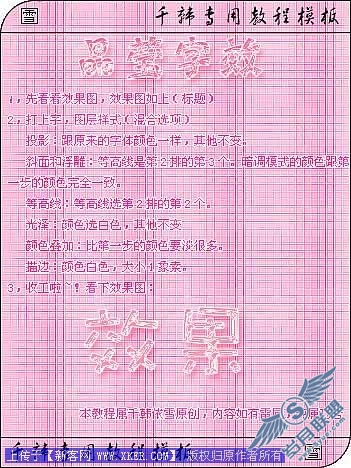 雪 千韩专用教程模板
晶莹字效
1,先看看效果图,效果图如上(标题)
2,打上字,图层样式(混合选项)
投影:跟原来的字体颜色一样,其他不变。
斜面和浮雕:等高线是第2排的第3个。暗调模式的颜色跟第
一步的颜色完全一致。
等高线:等高线选第2排的第2个。
光泽:颜色选白色,其他不变
颜色叠加:比第一步的颜色要淡很多。
描边:颜色白色,大小1象素。
3,收工啦~!看下效果图:
效果
本教程属千韩依雪原创,内容如有雷同
千韩专用教程模板 雪
上传于【新客网 www.xker.com】版权归原作者所有